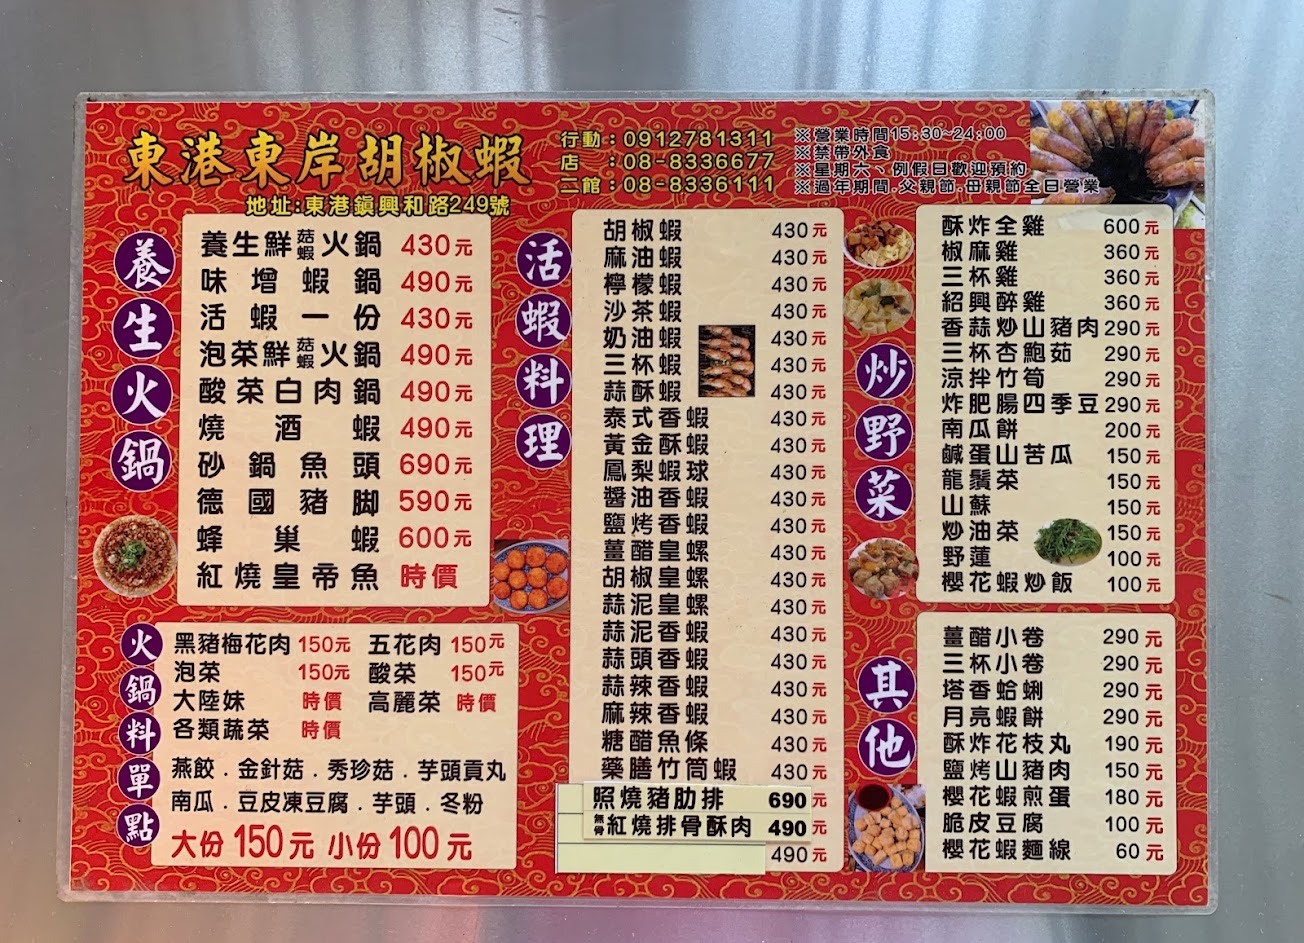 東港東岸胡椒蝦
地址:東港鎮興和路249號
行動：0912781311
店　：08-8336677
二館：08-8336111
※營業時間15:30~24:00
※禁帶外食
※星期六、例假日歡迎預約
※過年期間.父親節.母親節全日營業
養生火鍋
養生鮮菇蝦火鍋 430元
味增蝦鍋 490元
活蝦一份 430元
泡菜鮮菇蝦火鍋 490元
酸菜白肉鍋 490元
燒酒蝦 490元
砂鍋魚頭 690元
德國豬脚 590元
蜂巢蝦 600元
紅燒皇帝魚 時價
火鍋料單點
黑豬梅花肉 150元 五花肉 150元
泡菜 150元 酸菜 150元
大陸妹 時價 高麗菜 時價
各類蔬菜 時價
燕餃.金針菇.秀珍菇.芋頭貢丸
南瓜.豆皮凍豆腐.芋頭.冬粉
大份150元 小份100元
活蝦料理
胡椒蝦 430元
麻油蝦 430元
檸檬蝦 430元
沙茶蝦 430元
奶油蝦 430元
三杯蝦 430元
蒜酥蝦 430元
泰式香蝦 430元
黃金酥蝦 430元
鳳梨蝦球 430元
醬油香蝦 430元
鹽烤香蝦 430元
薑醋皇螺 430元
胡椒皇螺 430元
蒜泥皇螺 430元
蒜泥香蝦 430元
蒜頭香蝦 430元
蒜辣香蝦 430元
麻辣香蝦 430元
糖醋魚條 430元
藥膳竹筒蝦 430元
照燒豬肋排 690元
無骨紅燒排骨酥肉 490元
490元
炒野菜
酥炸全雞 600元
椒麻雞 360元
三杯雞 360元
紹興醉雞 360元
香蒜炒山豬肉 290元
三杯杏鮑茹 290元
涼拌竹筍 290元
炸肥腸四季豆 290元
南瓜餅 200元
鹹蛋山苦瓜 150元
龍鬚菜 150元
山蘇 150元
炒油菜 150元
野蓮 100元
櫻花蝦炒飯 100元
其他
薑醋小卷 290元
三杯小卷 290元
塔香蛤蜊 290元
月亮蝦餅 290元
酥炸花枝丸 190元
鹽烤山豬肉 150元
櫻花蝦煎蛋 180元
脆皮豆腐 100元
櫻花蝦麵線 60元